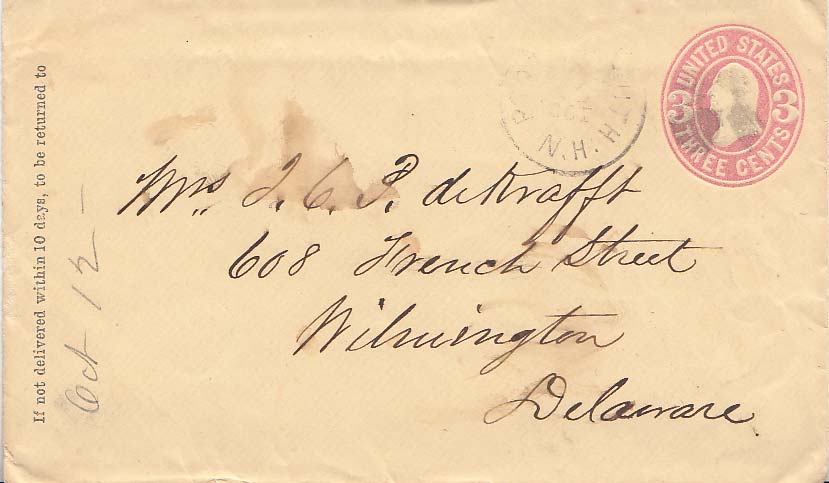 UNITED STATES
3 3
THREE CENTS
N.H.
Mrs J. C. P. deKrafft
608 French Street
Wilmington
Delaware
If not delivered within 10 days, to be returned to
Oct 12 -